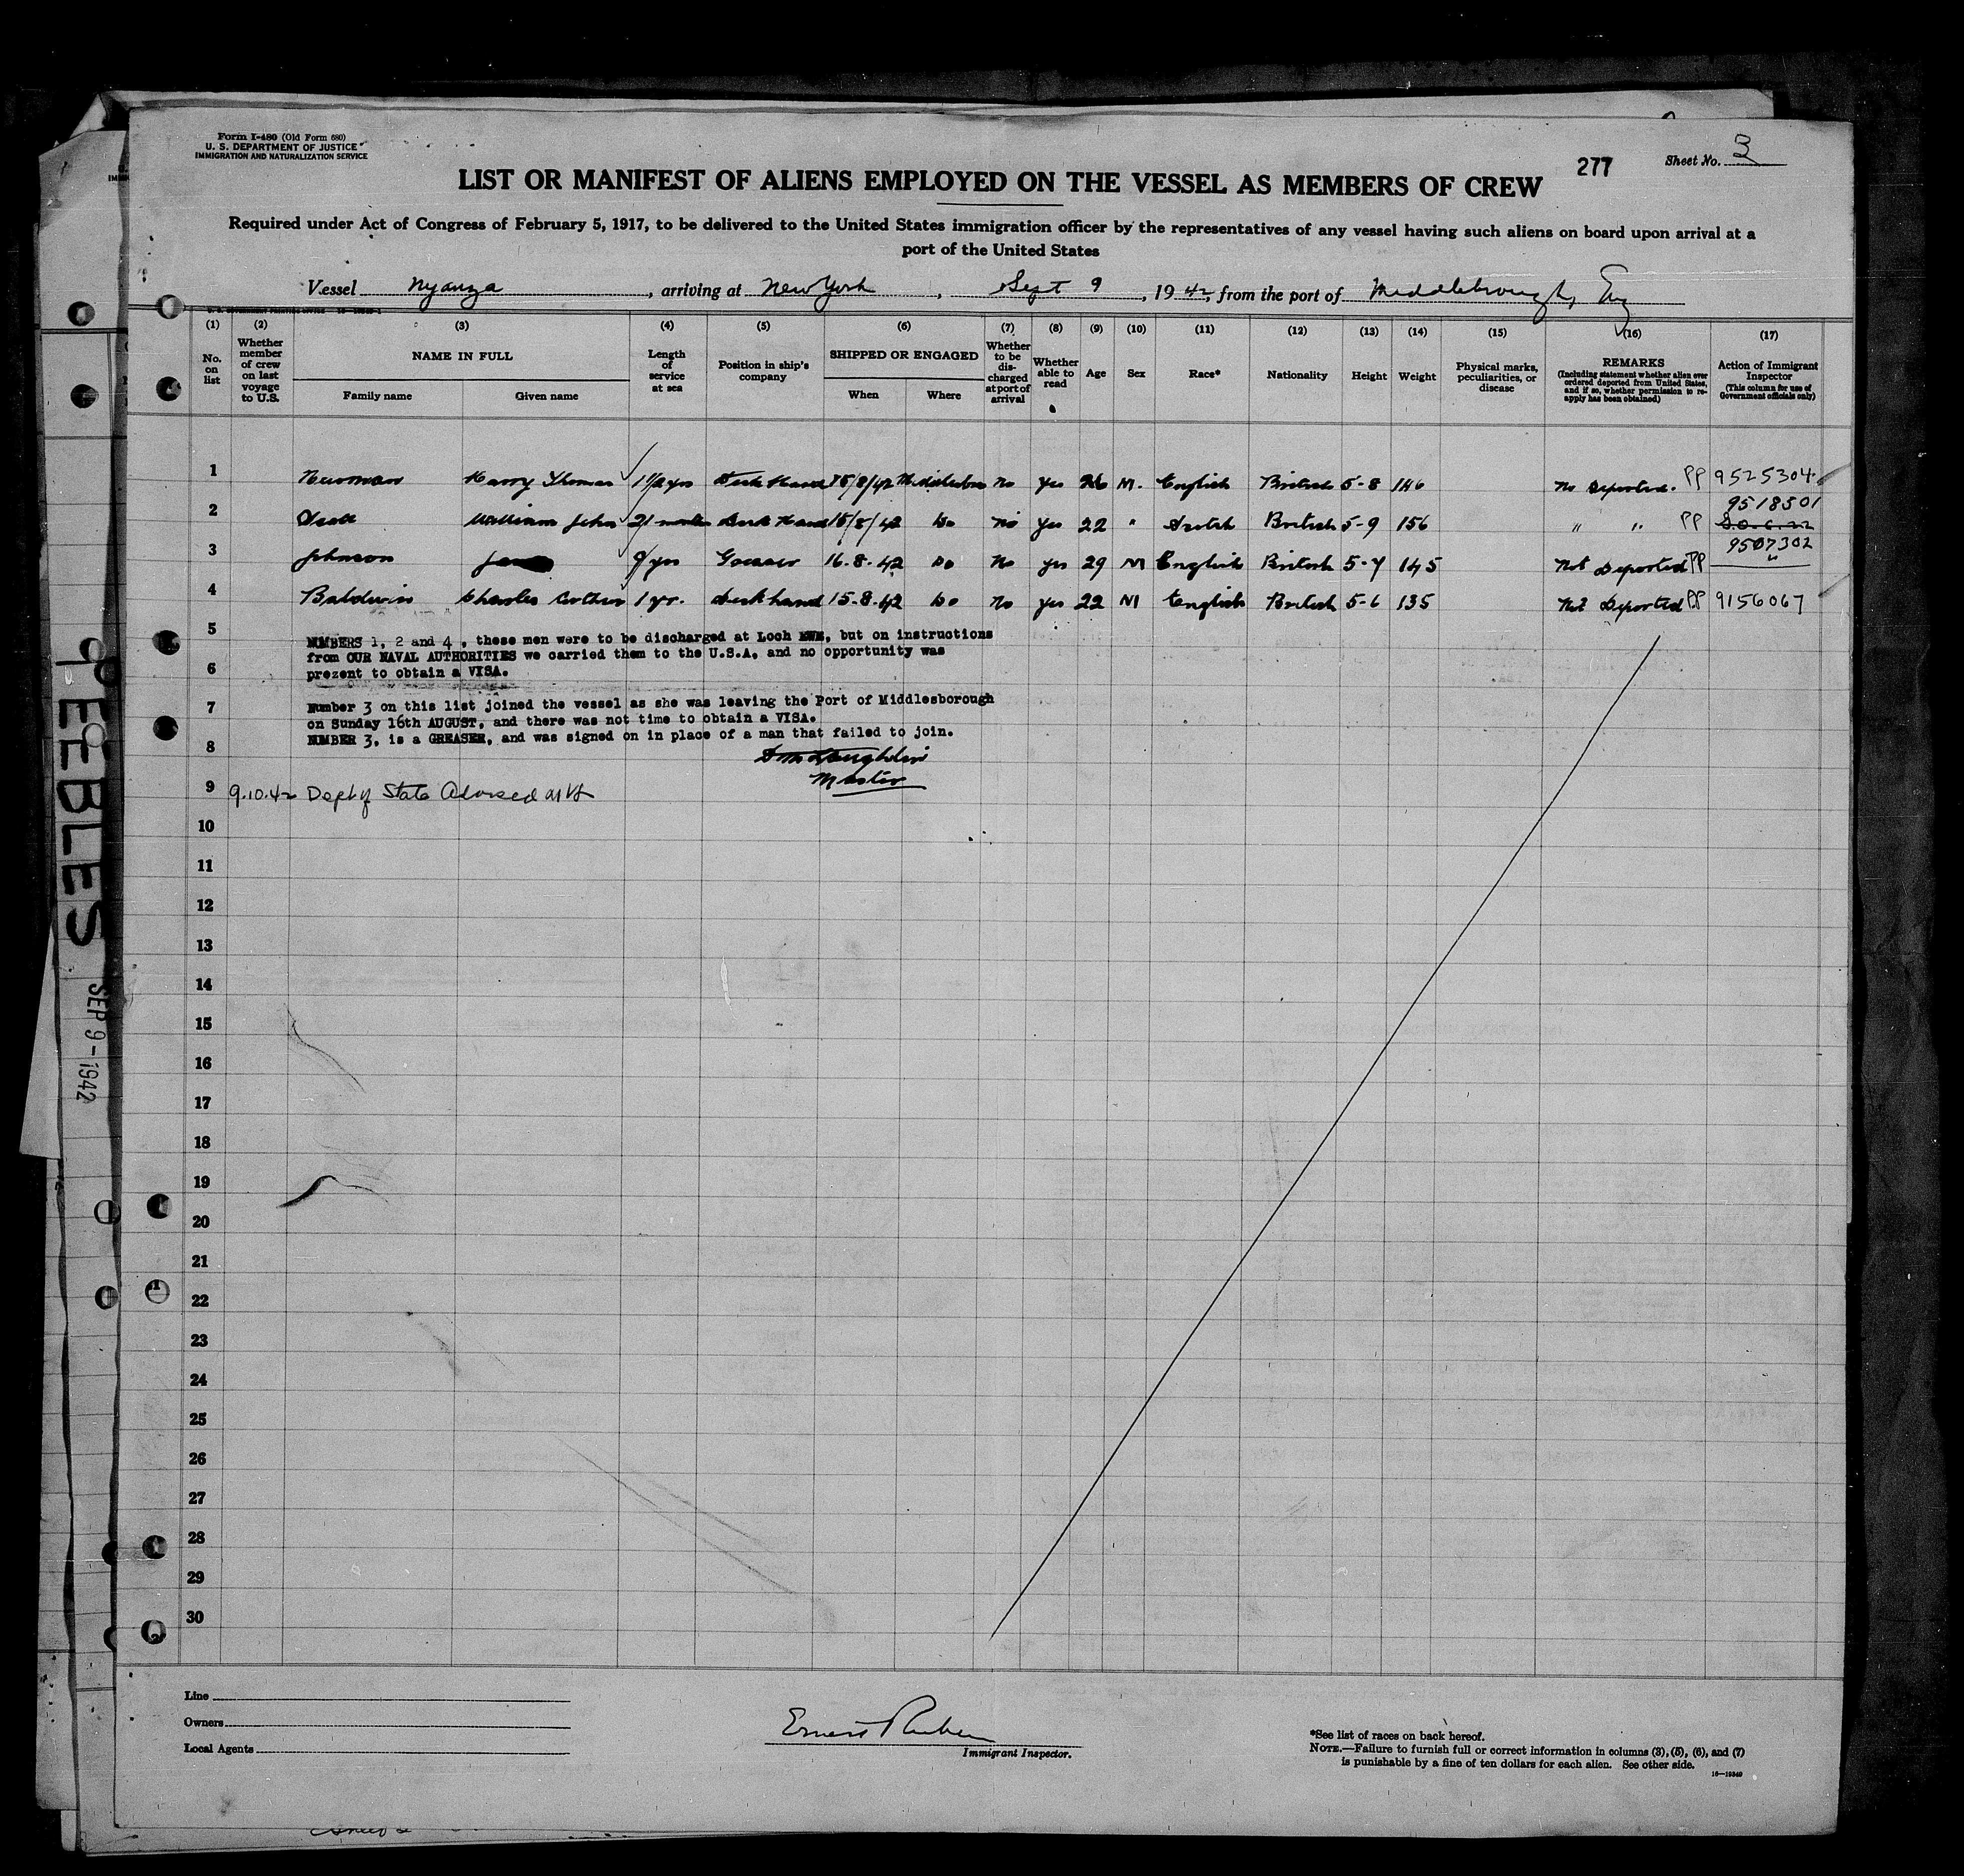 Form I-480 (Old Form 680)
U. S. DEPARTMENT OF JUSTICE
IMMIGRATION AND NATURALIZATION SERVICE
277
Sheet No. 3
LIST OR MANIFEST OF ALIENS EMPLOYED ON THE VESSEL AS MEMBERS OF CREW
Required under Act of Congress of February 5, 1917, to be delivered to the United States immigration officer by the representatives of any vessel having such aliens on board upon arrival at a
port of the United States
Vessel Nyanza, arriving at New York, Sept 9, 1942, from the port of Middlesbrough, Eng
(1) (2) (3) (4) (5) (6) (7) (8) (9) (10) (11) (12) (13) (14) (15) (16) (17)
No. on list
Whether member of crew on last voyage to U.S.
NAME IN FULL
Family name
Given name
Length of service at sea
Position in ship's company
SHIPPED OR ENGAGED
When
Where
Whether to be discharged at port of arrival
Whether able to read
Age
Sex
Race*
Nationality
Height
Weight
Physical marks, peculiarities, or disease
REMARKS
(Including statement whether alien ever ordered deported from United States, and if so, whether permission to reapply has been obtained)
Action of Immigrant Inspector
(This column for use of Government officials only)
1 Newman Harry Thomas 1 1/2 yrs Deck Hand 15/8/42 Middlesbro No yes 26 M. English British 5-8 146 No Deported. PP 9525304
2 Scott William John 21 months Deck Hand 15/8/42 Do No yes 22 " Scotch British 5-9 156 " " PP 9518501
3 Johnson 9 yrs Greaser 16.8.42 Do No yes 29 M English British 5-7 145 Not Deported PP 9507302
4 Baldwin Charles Arthur 1 yr. Deckhand 15.8.42 Do No yes 22 M English British 5-6 135 Not Deported PP 9156067
5
NUMBERS 1, 2 and 4, these men were to be discharged at Loch EWE, but on instructions
from OUR NAVAL AUTHORITIES we carried them to the U.S.A, and no opportunity was
6
prezent to obtain a VISA.
7
Number 3 on this list joined the vessel as she was leaving the Port of Middlesborough
on Sunday 16th AUGUST, and there was not time to obtain a VISA.
8
NUMBER 3, is a GREASER, and was signed on in place of a man that failed to join.
Master
9
9.10.42 Dept of State Advised
10
11
12
13
14
15
16
17
18
19
20
21
22
23
24
25
26
27
28
29
30
Line
Owners
Local Agents
Immigrant Inspector.
*See list of races on back hereof.
NOTE.—Failure to furnish full or correct information in columns (3), (5), (6), and (7)
is punishable by a fine of ten dollars for each alien. See other side.
16—19349
PEEBLES
SEP 9-1942